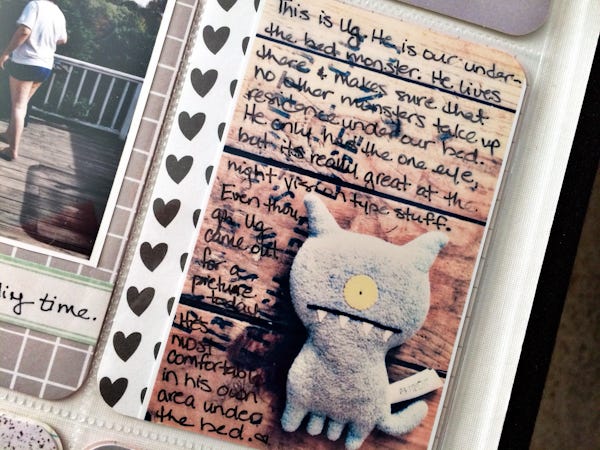 This is Ug. He is our under-
the bed monster. He lives
there & makes sure that
no other monsters take up
residence under our bed.
He only has the one eye,
but it's really great at the
night vision type stuff.
Even thou-
gh Ug
came out
for a
picture
today,
He's
most
comfortable
in his own
area under
the bed.
time.